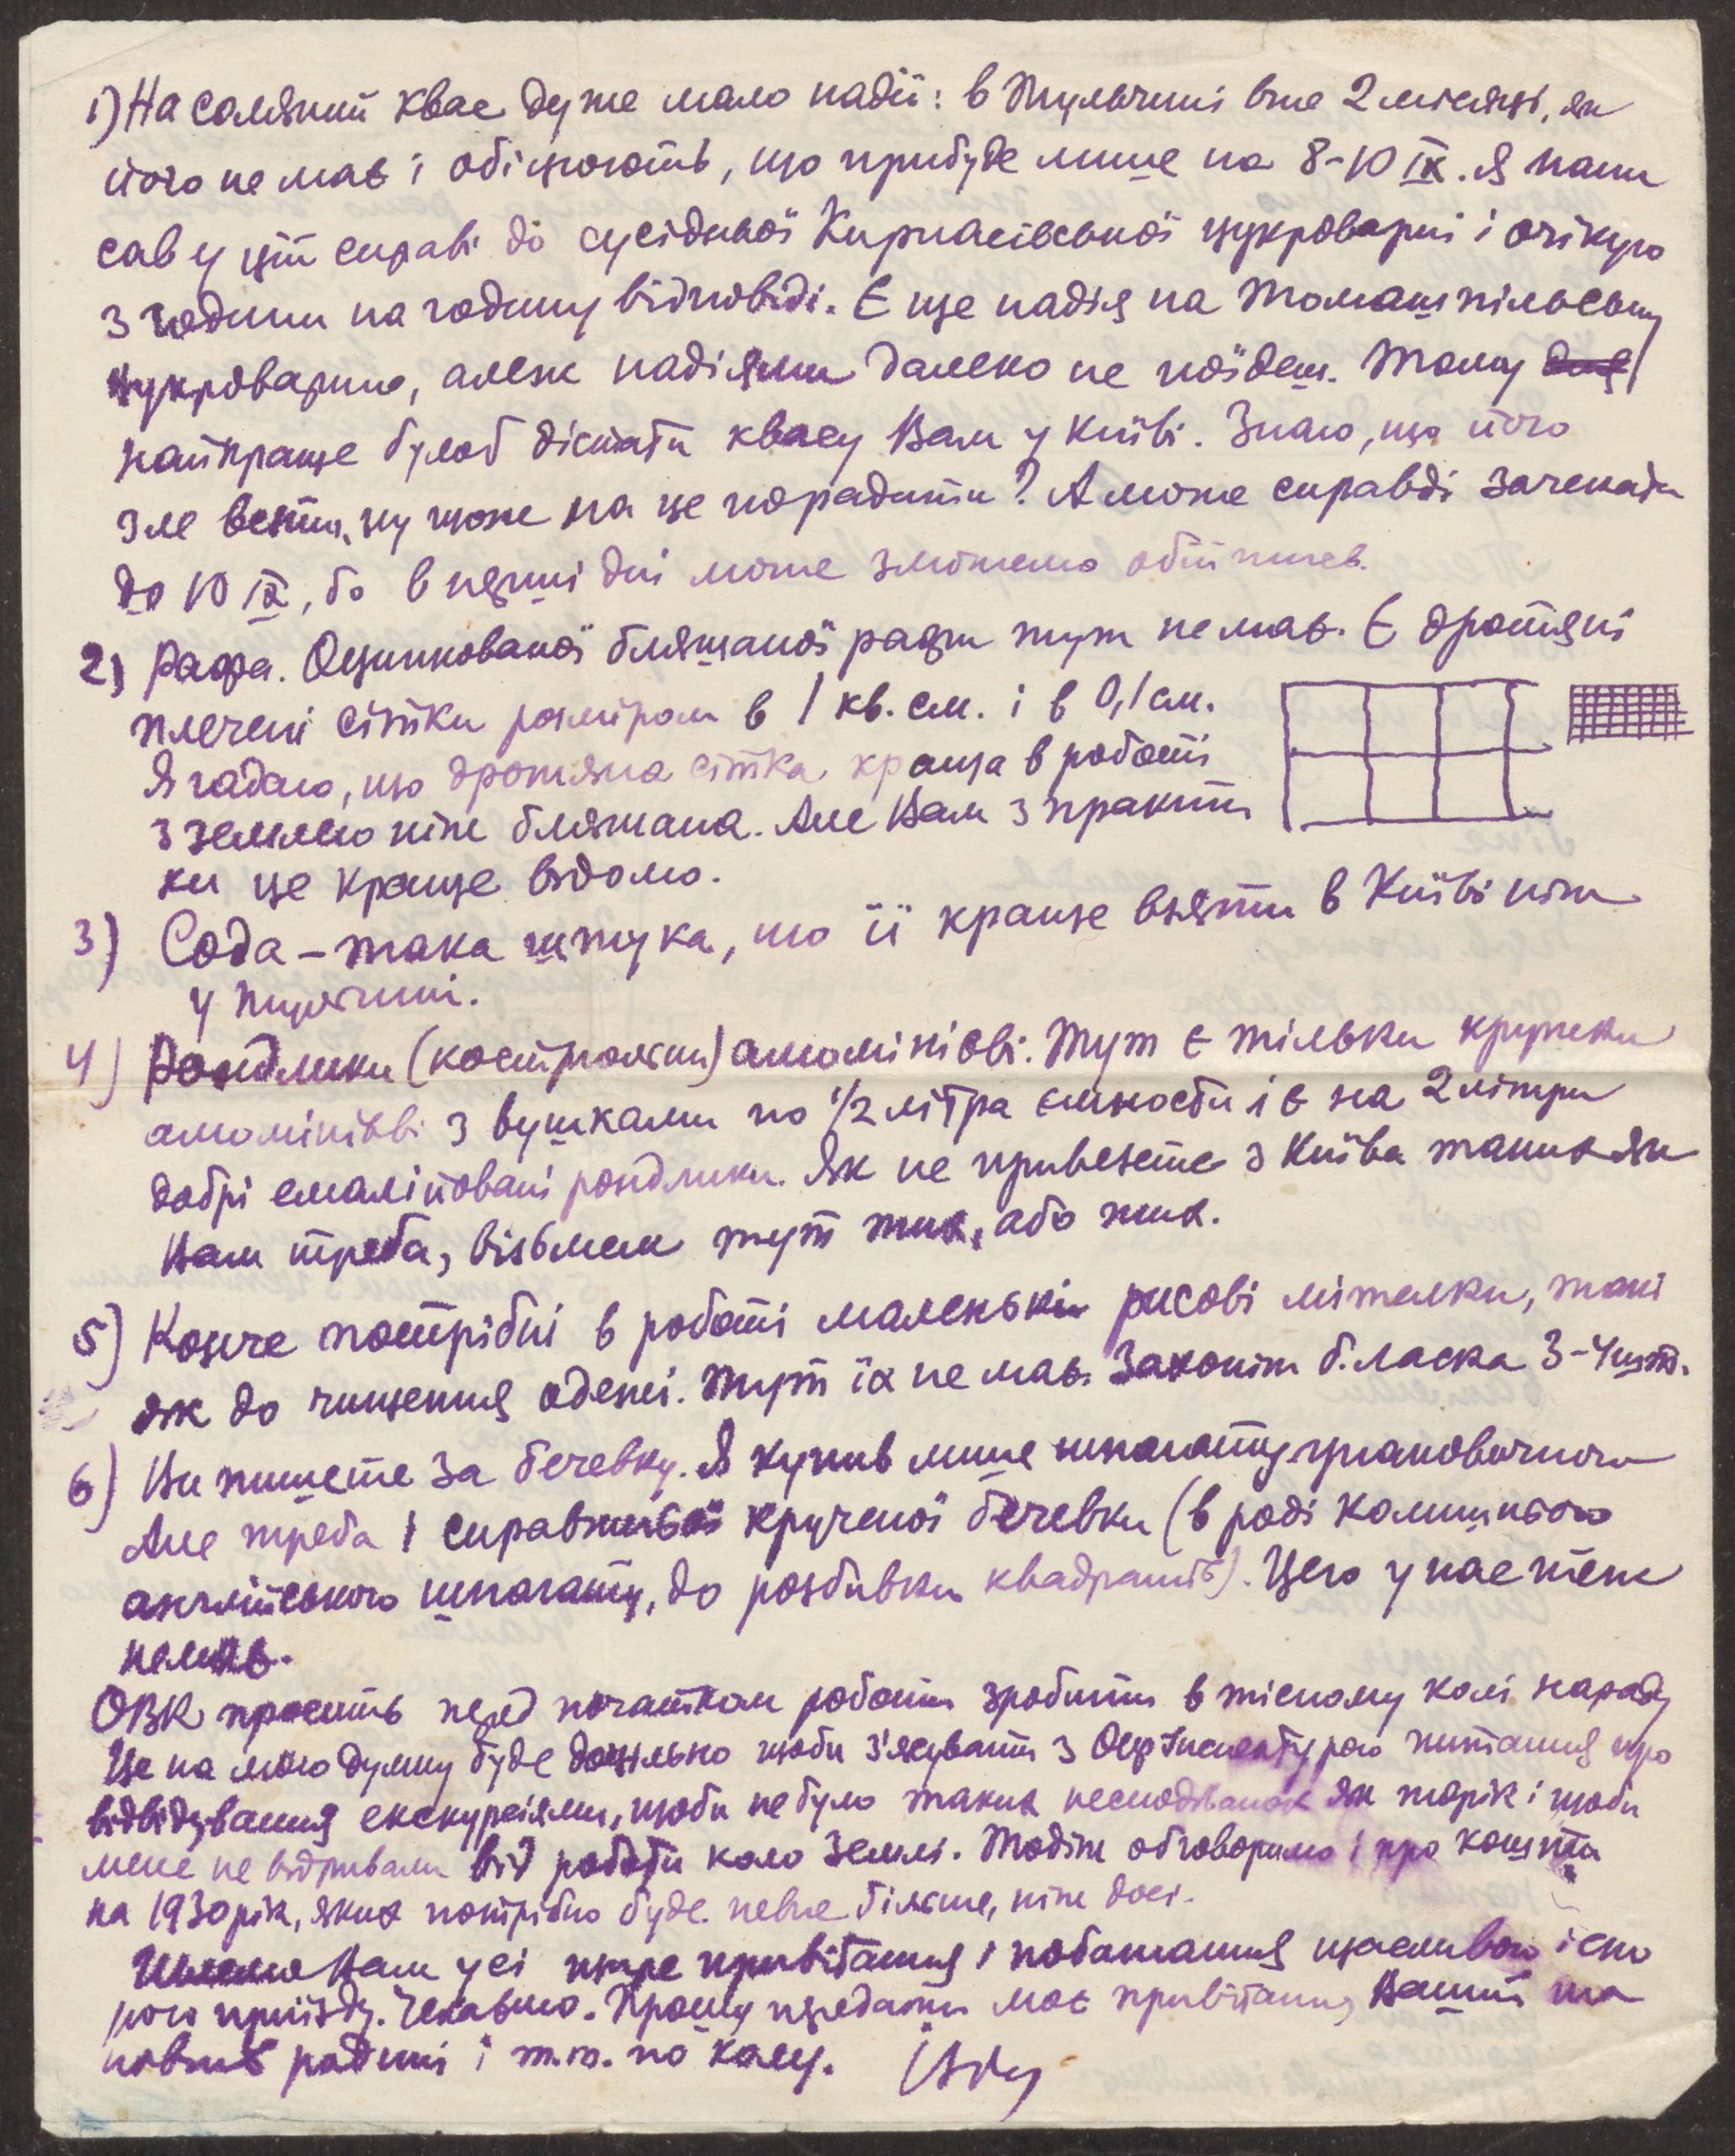 1) На соляний квас дуже мало надії: в Тульчині вже 2 місяці, як
його не має і обіцяють, що прибуде лише на 8-10 IX. Я напи
сав у цій справі до сусідньої Кирнасівської цукроварні і очікую
з години на годину відповіді. Є ще надія на Томашпільську
цукроварню, алеж надіями далеко не поїдеш. Тому
найкраще булоб дістати квасу Вам у Київі. Знаю, що його
зле везти, ну щоже на це порадити? А може справді зачекати
до 10 IX, бо в перші дні може зможемо обійтись.
2) Рафа. Оцинкованої бляшаної рафи тут немає. Є дротяні
плечені сітки розміром в 1 кв. см. і в 0,1 см.
Я гадаю, що дротяна сітка краща в роботі
з землею ніж бляшана. Але Вам з практи
ки це краще відомо.
3) Сода – така штука, що її краще взяти в Київі ніж
у Тульчині.
4) Рондлики (кострольки) алюмінієві. Тут є тільки кружки
алюмінієві з вушками по 1/2 літра ємности і є на 2 літри
добрі емалійовані рондлики. Як не привезете з Київа таких як
Вам треба, візьмем тут тих, або тих.
5) Конче потрібні в роботі маленькі рисові мітелки, такі
як до чищення одежі. Тут їх немає. Захопіть б. ласка 3-4 шт.
6) Ви пишете за бечевку. Я купив лише шпагату упаковочного
Але треба і справжньої крученої бечевки (в роді колишнього
англійського шпагату, до розбивки квадратів). Цього у нас теж
немає.
ОВК просить перед початком роботи зробити в тісному колі нараду
Це на мою думку буде доцільно щоби з'ясувати з Окрінспектурою питання про
відвідування екскурсіями, щоби не було таких несподіванок як торік і щоби
мене не відривали від роботи коло землі. Тодіж обговоримо і про кошти
на 1930 рік, яких потрібно буде певне більше, ніж досі.
Шлемо Вам усі щире привітання і побажання щасливого і ско
рого приїзду. Чекаємо. Прошу передати моє привітання Вашій ша
новній родині і т.т. по Каму.